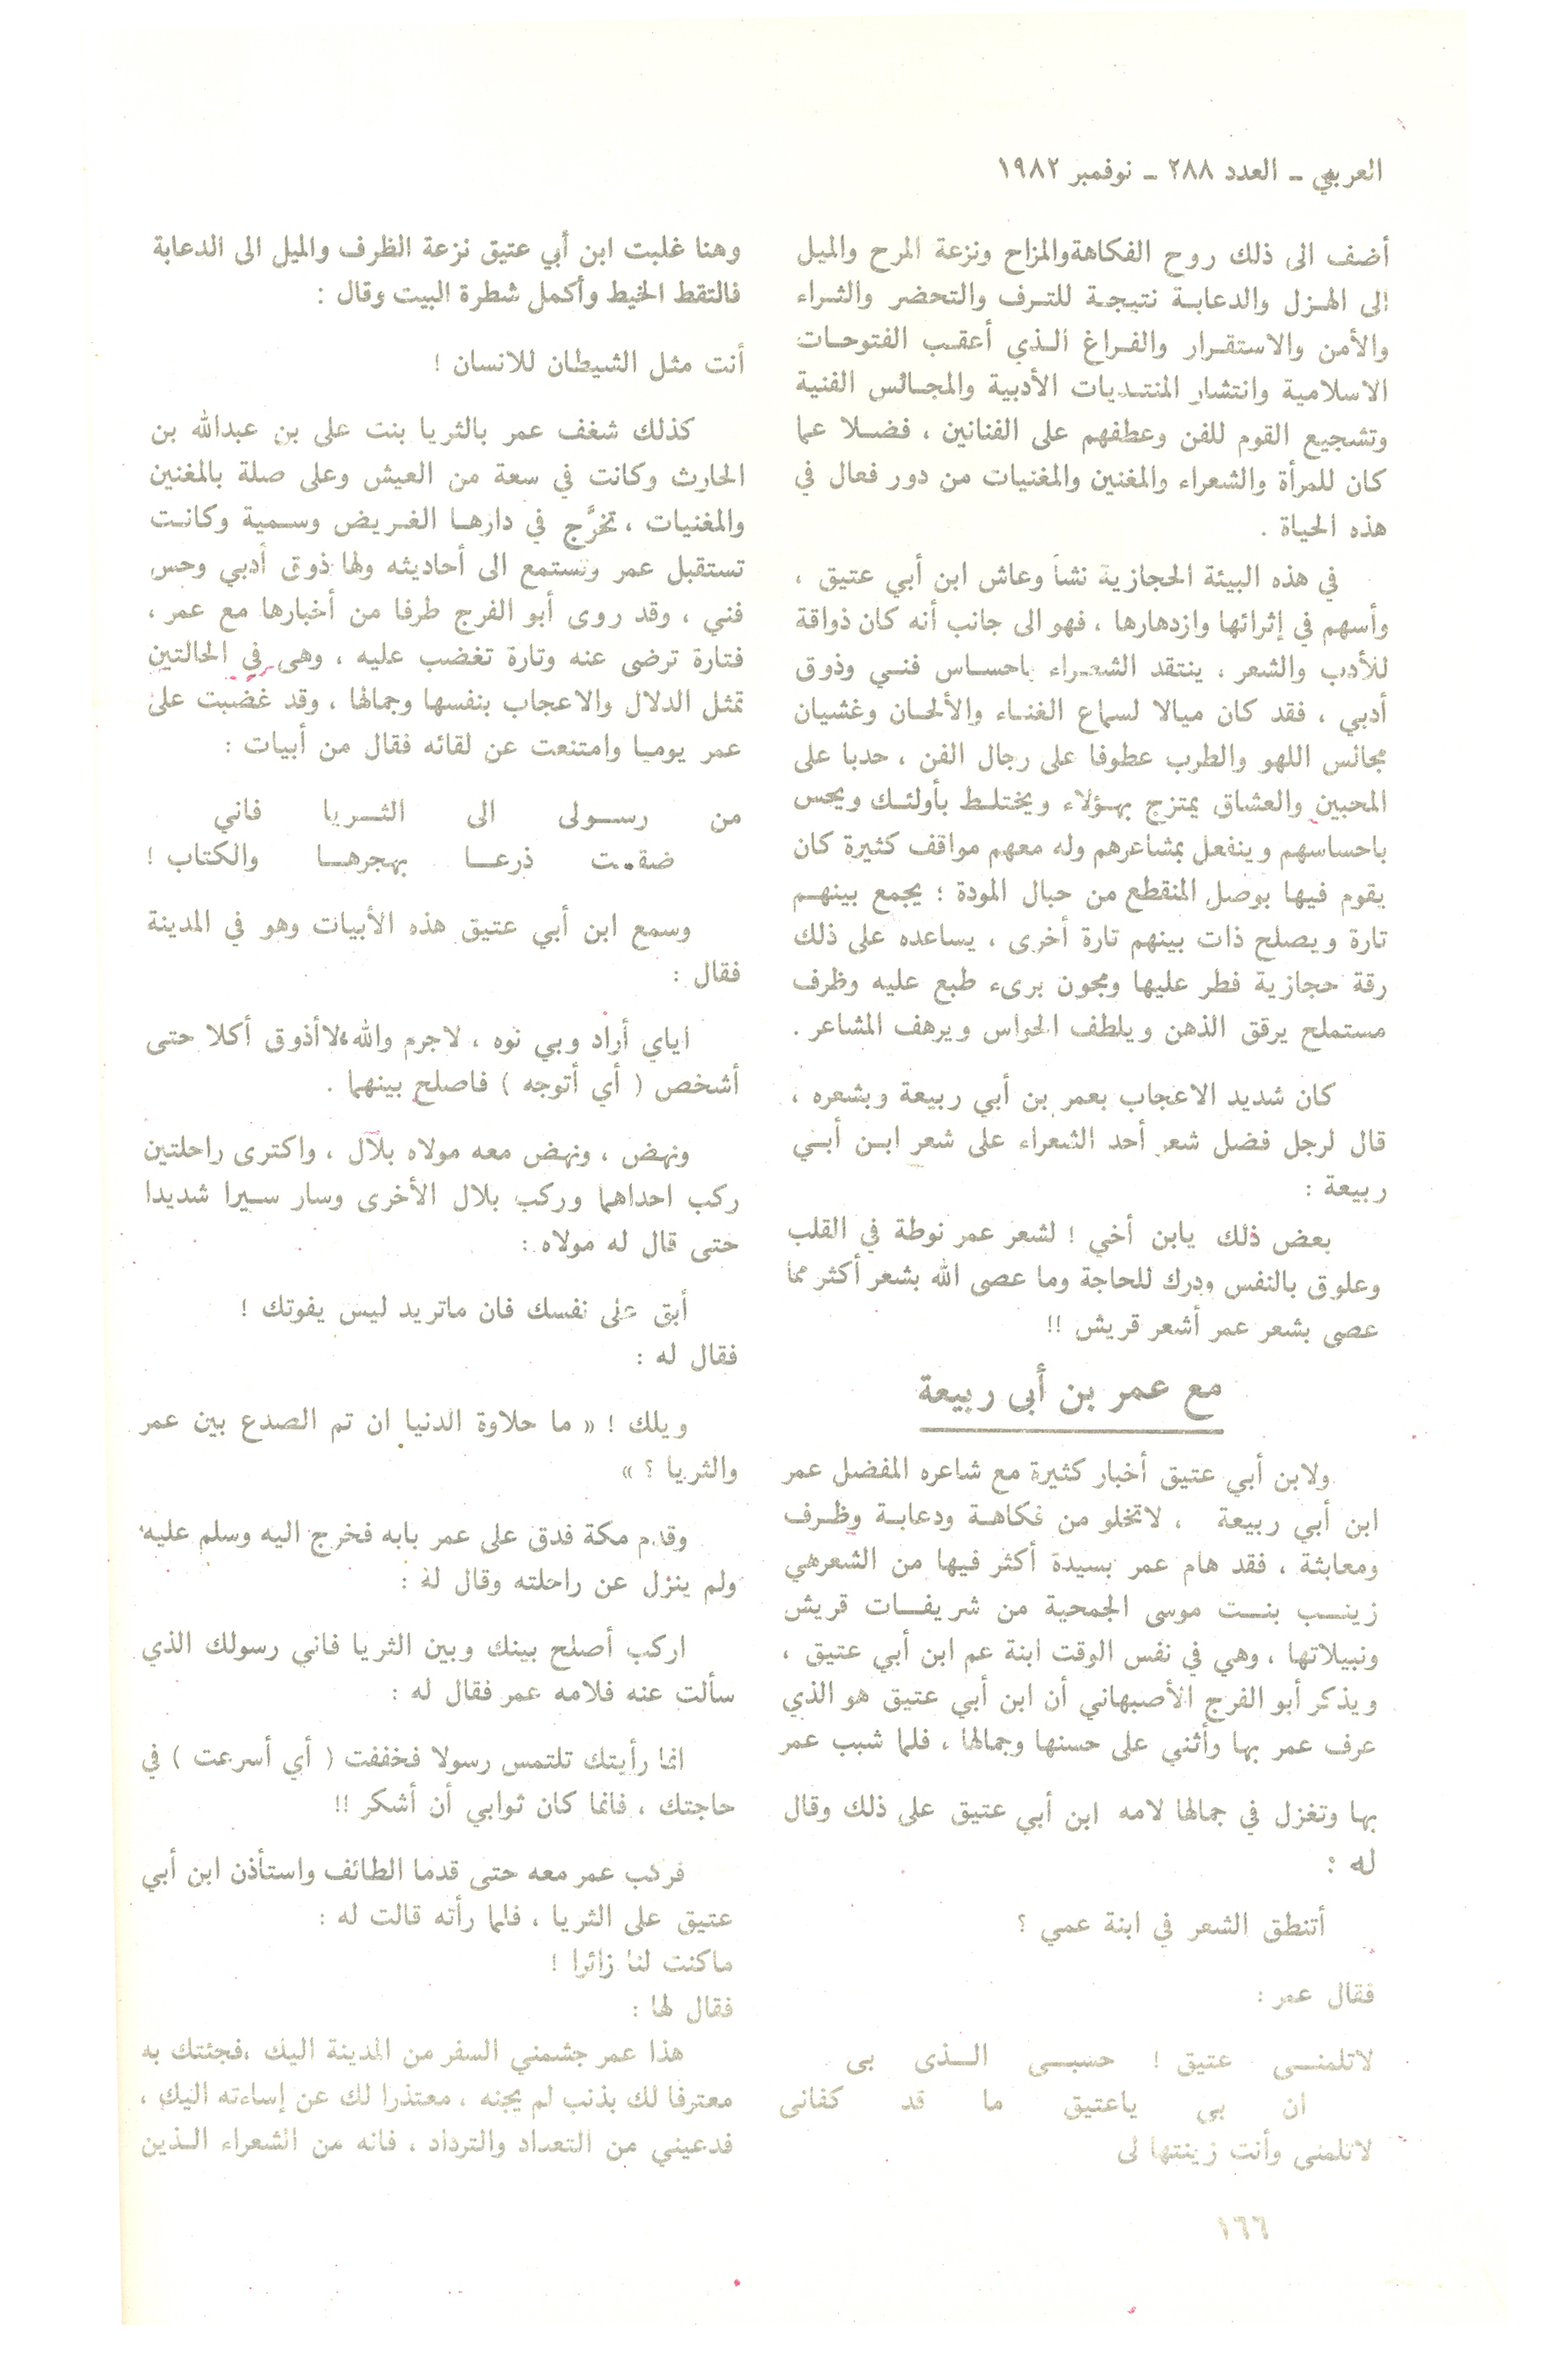 العربي ـ العدد ٢٨٨ ـ نوفمبر ١٩٨٢
أضف الى ذلك روح الفكاهةوالمزاح ونزعة المرح والميل
الى الهزل والدعابة نتيجة للترف والتحضر والثراء
والأمن والاستقرار والفراغ الذي أعقب الفتوحات
الاسلامية وانتشار المنتديات الأدبية والمجالس الفنية
وتشجيع القوم للفن وعطفهم على الفنانين ، فضلا عما
كان للمرأة والشعراء والمغنين والمغنيات من دور فعال في
هذه الحياة .
في هذه البيئة الحجازية نشأ وعاش ابن أبي عتيق ،
وأسهم في إثرائها وازدهارها ، فهو الى جانب أنه كان ذواقة
للأدب والشعر ، ينتقد الشعراء باحساس فني وذوق
أدبي ، فقد كان ميالا لسماع الغناء والألحان وغشيان
مجالس اللهو والطرب عطوفا على رجال الفن ، حدبا على
المحبين والعشاق يمتزج بهؤلاء ويختلط بأولئك ويحس
باحساسهم وينفعل بمشاعرهم وله معهم مواقف كثيرة كان
يقوم فيها بوصل المنقطع من حبال المودة ؛ يجمع بينهم
تارة ويصلح ذات بينهم تارة أخرى ، يساعده على ذلك
رقة حجازية فطر عليها ومجون برىء طبع عليه وظرف
مستملح يرقق الذهن ويلطف الحواس ويرهف المشاعر .
كان شديد الاعجاب بعمر بن أبي ربيعة وبشعره ،
قال لرجل فضل شعر أحد الشعراء على شعر ابن أبي
ربيعة :
بعض ذلك يابن أخي ! لشعر عمر نوطة في القلب
وعلوق بالنفس ودرك للحاجة وما عصى الله بشعر أكثر مما
عصى بشعر عمر أشعر قريش !!
مع عمر بن أبى ربيعة
ولابن أبي عتيق أخبار كثيرة مع شاعره المفضل عمر
ابن أبي ربيعة ، لاتخلو من فكاهة ودعابة وظرف
ومعابثة ، فقد هام عمر بسيدة أكثر فيها من الشعرهي
زينب بنت موسى الجمحية من شريفات قريش
ونبيلاتها ، وهي في نفس الوقت ابنة عم ابن أبي عتيق ،
ويذكر أبو الفرج الأصبهاني أن ابن أبي عتيق هو الذي
عرف عمر بها وأثنى على حسنها وجمالها ، فلما شبب عمر
بها وتغزل في جمالها لامه ابن أبي عتيق على ذلك وقال
له :
أتنطق الشعر في ابنة عمي ؟
فقال عمر :
لاتلمنى عتيق ! حسبى الذى بى
ان بى ياعتيق ما قد كفانى
لاتلمنى وأنت زينتها لى
وهنا غلبت ابن أبي عتيق نزعة الظرف والميل الى الدعابة
فالتقط الخيط وأكمل شطرة البيت وقال :
أنت مثل الشيطان للانسان !
كذلك شغف عمر بالثريا بنت على بن عبدالله بن
الحارث وكانت في سعة من العيش وعلى صلة بالمغنين
والمغنيات ، تخرَّج في دارها الغريض وسمية وكانت
تستقبل عمر وتستمع الى أحاديثه ولها ذوق أدبي وحس
فني ، وقد روى أبو الفرج طرفا من أخبارها مع عمر ،
فتارة ترضى عنه وتارة تغضب عليه ، وهى في الحالتين
تمثل الدلال والاعجاب بنفسها وجمالها ، وقد غضبت على
عمر يوميا وامتنعت عن لقائه فقال من أبيات :
من رسولى الى الثريا فاني
ضقت ذرعا بهجرها والكتاب !
وسمع ابن أبي عتيق هذه الأبيات وهو في المدينة
فقال :
اياي أراد وبي نوه ، لاجرم والله،لاأذوق أكلا حتى
أشخص ( أي أتوجه ) فاصلح بينهما .
ونهض ، ونهض معه مولاه بلال ، واكترى راحلتين
ركب احداهما وركب بلال الأخرى وسار سيرا شديدا
حتى قال له مولاه :
أبق على نفسك فان ماتريد ليس يفوتك !
فقال له :
ويلك ! « ما حلاوة الدنيا ان تم الصدع بين عمر
والثريا ؟ »
وقدم مكة فدق على عمر بابه فخرج اليه وسلم عليه
ولم ينزل عن راحلته وقال له :
اركب أصلح بينك وبين الثريا فاني رسولك الذي
سألت عنه فلامه عمر فقال له :
انما رأيتك تلتمس رسولا فخففت ( أي أسرعت ) في
حاجتك ، فانما كان ثوابي أن أشكر !!
فركب عمر معه حتى قدما الطائف واستأذن ابن أبي
عتيق على الثريا ، فلما رأته قالت له :
ماكنت لنا زائرا !
فقال لها :
هذا عمر جشمني السفر من المدينة اليك ،فجئتك به
معترفا لك بذنب لم يجنه ، معتذرا لك عن إساءته اليك ،
فدعيني من التعداد والترداد ، فانه من الشعراء الذين
١٦٦